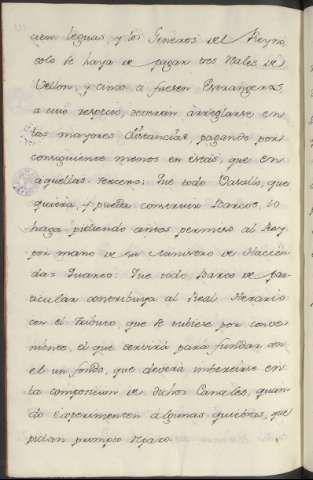 cien leguas, y los Generos del Reyno,
solo se haya de pagar tres Reales de
Vellon, y cinco si fuesen Extrangeros,
a cuio respecto, deveran arreglarse en
las mayores distancias, pagando por
consiguiente menos en estas, que en
aquellas. Tercero: Que todo Vasallo, que
quiera, y pueda construir Barcos, lo
haga pidiendo antes permiso al Rey
por mano de su Ministro de Hacien
da: Quarto: Que todo Barco de par
ticular contribuya al Real Herario
con el tributo, que se tubiese por conve
niente, el que servirá para fundar con
el un fondo, que deverá imbertirse en
la composicion de dichos Canales, quan
do experimenten algunas quiebras, que
pidan prompto reparo.